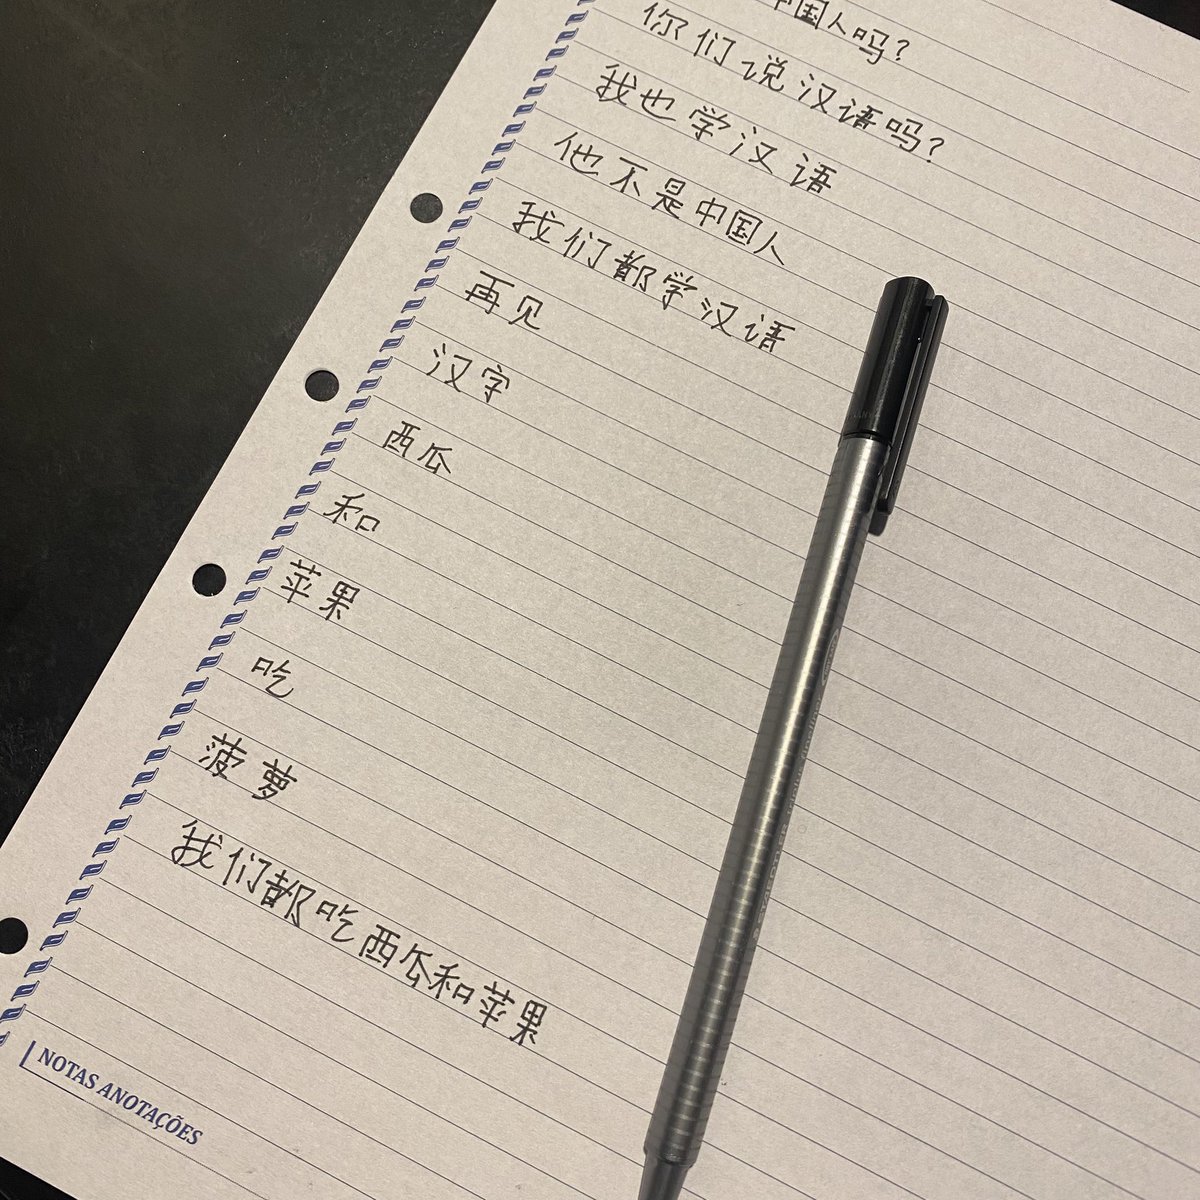 中国人吗?
你们说汉语吗?
我也学汉语
他不是中国人
我们都学汉语
再见
汉字
西瓜
和
苹果
吃
菠萝
我们都吃西瓜和苹果
NOTAS ANOTAÇÕES